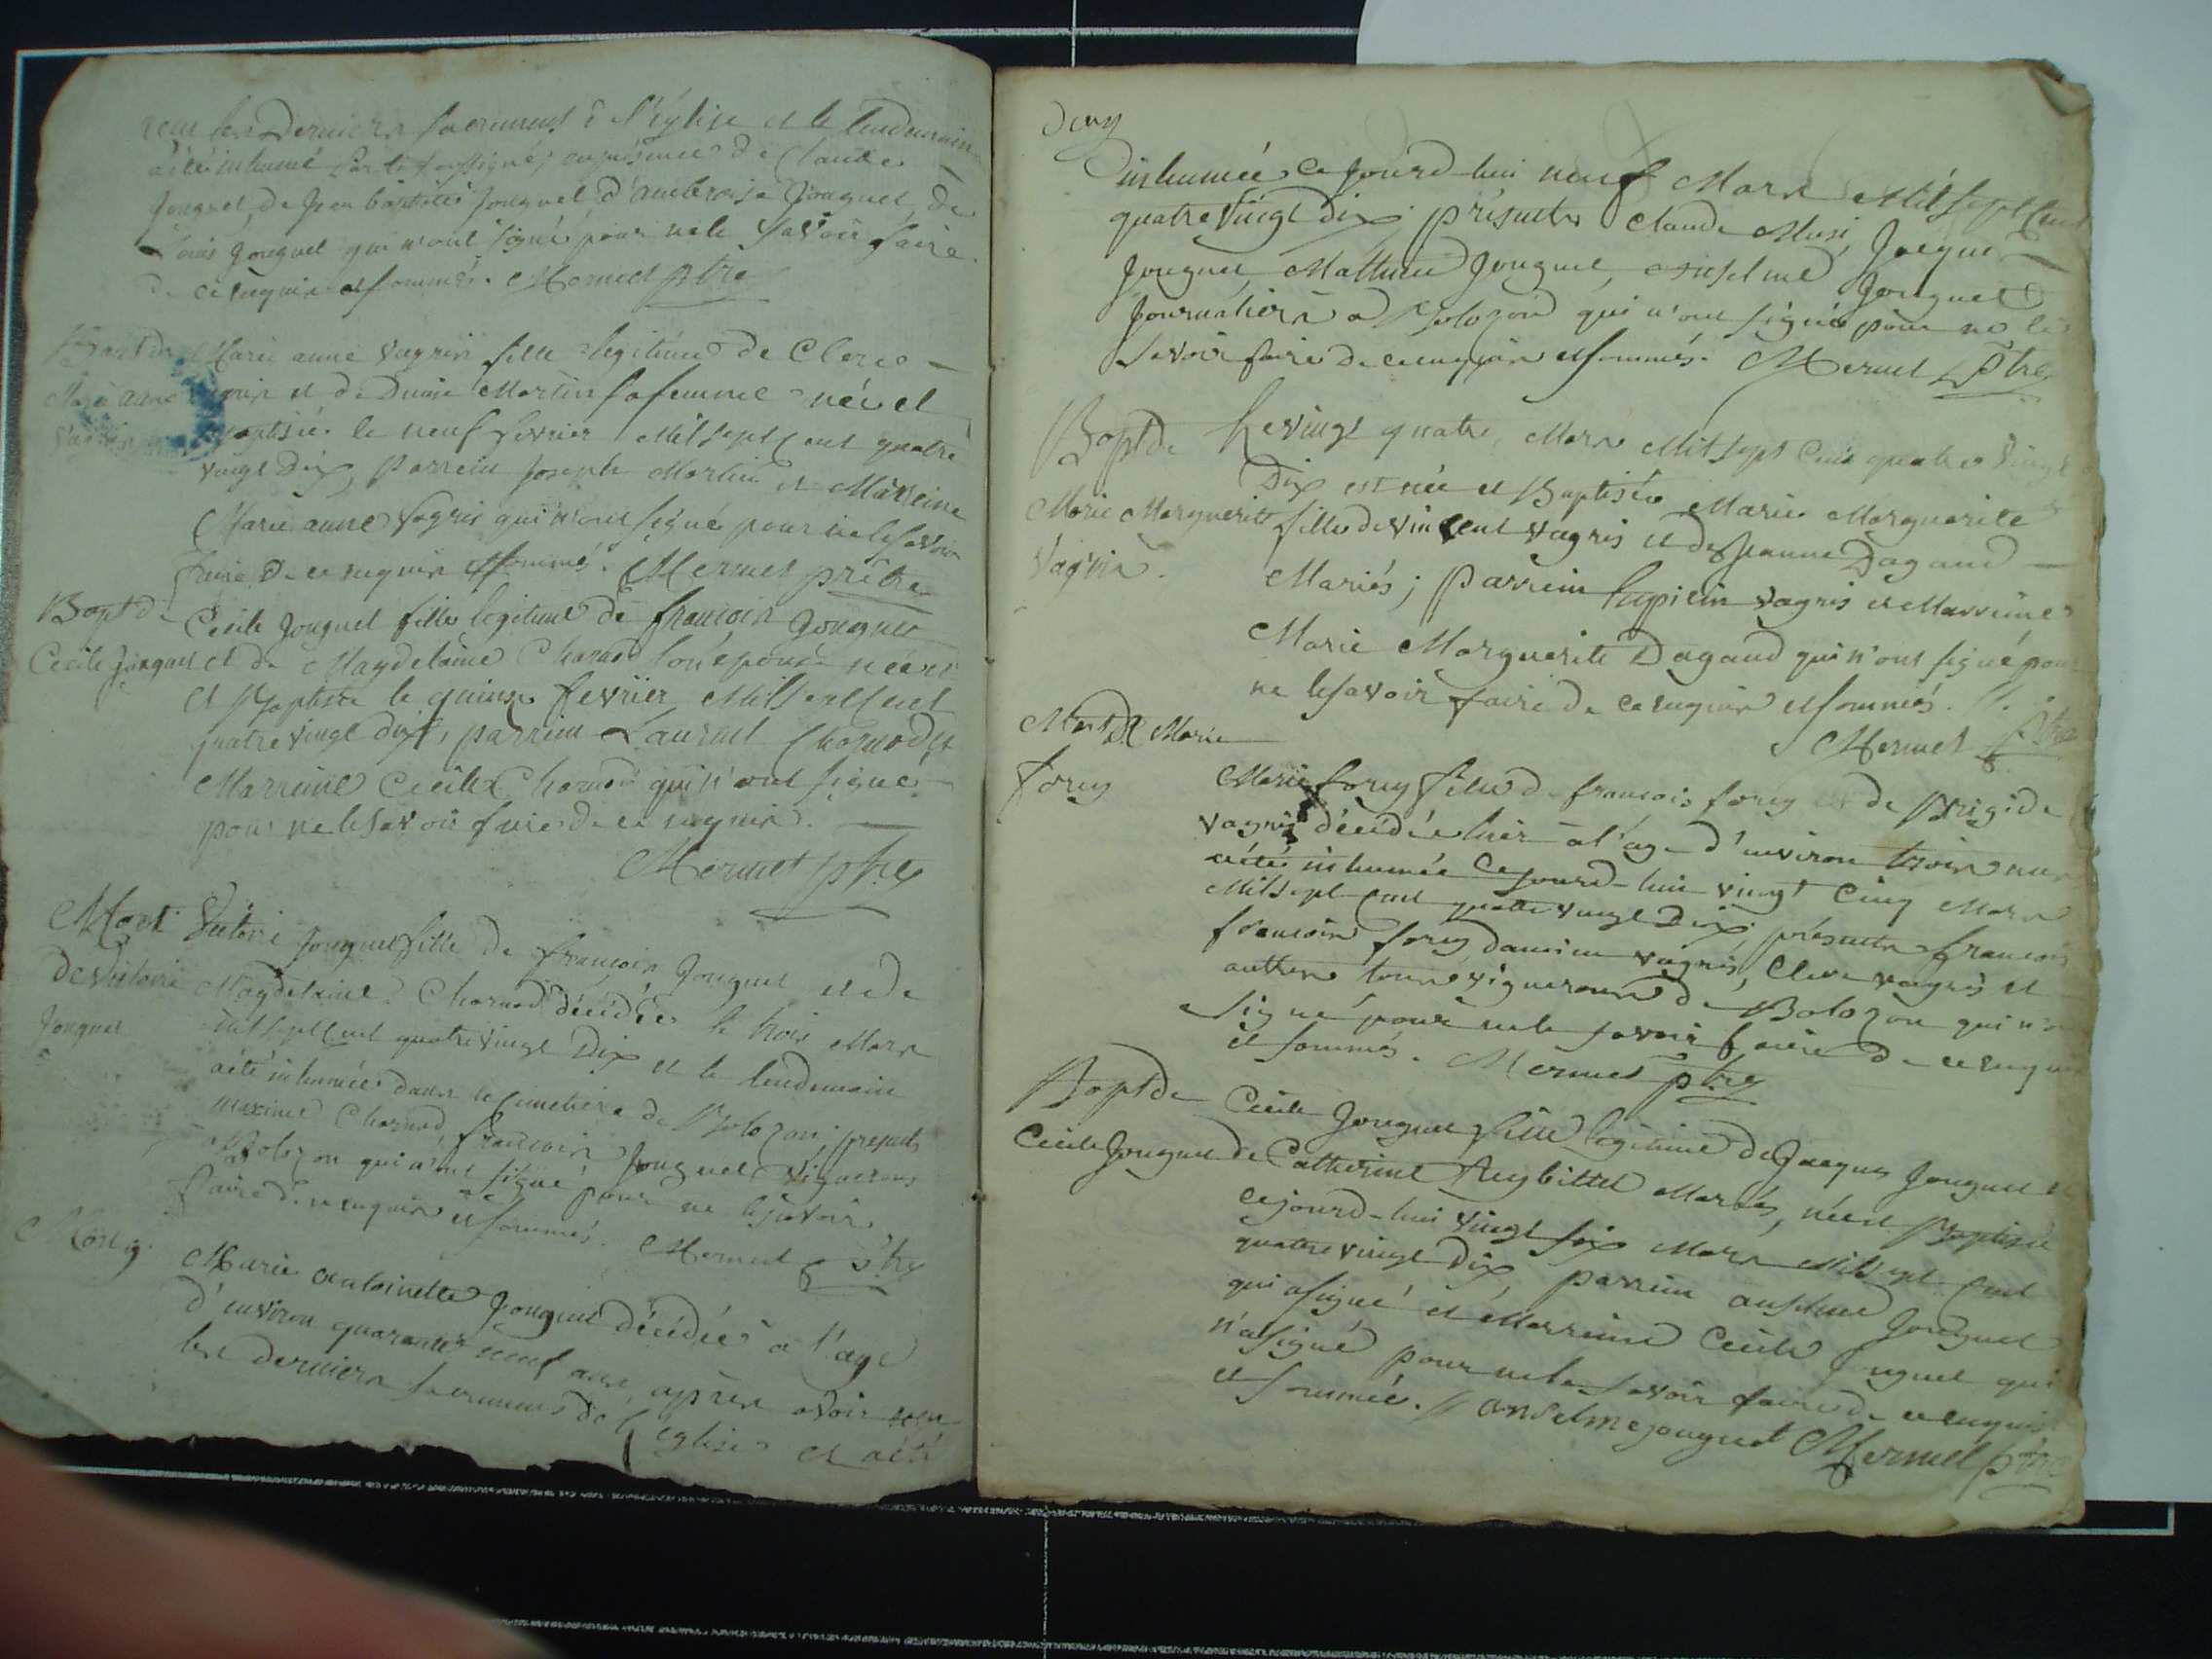 recu les Derniers sacrements de l'Eglise et le lendemain
a été inhumé par le soussigné, en présence de Claude
Jouguet, de Jean baptiste Jouguet, d'ambroise Jouguet, de
Jouguet qui n'ont signé pour ne le savoir faire
de ce requis et sommés. Mermet ptre
Bapt de
Marie anne
Vagris
Marie anne Vagris fille legitime de Clere
et de Martin sa femme née et
baptisée le neuf fevrier Mil sept Cent quatre
vingt Dix, parrein Joseph Martin et Marreine
Marie anne Vagris qui n'ont signé pour ne le savoir
faire de ce requis et sommés. Mermet prêtre
Bapt de
Cecile Jouguet
Cecile Jouguet fille legitime de francois Jouguet
et de Magdelaine Charnod son épouse née
et Baptisée le quinze fevrier Mil sept Cent
quatre vingt dix, parrein Laurent Charnod et
Marreine Cecile Charnod qui n'ont signé
pour ne le savoir faire de ce requis.
Mermet ptre
Mort
de Victoire
Jouguet
Victoire Jouguet fille de françois Jouguet et de
Magdelaine Charnod décédée le trois Mars
mil sept Cent quatre vingt Dix et le lendemain
a été inhumée dans le Cimetiere de Bolozon; présents
maxime Charnod, francois Jouguet Vignerons
a Bolozon qui n'ont signé pour ne le savoir
faire de ce requis et sommés. Mermet ptre
Marie antoinette Jouguet décédée a l'age
d'environ quarante neuf ans, après avoir reçu
les derniers sacremens de l'église et a été
Deux
inhumée ce Jourd-hui neuf Mars Mil sept Cent
quatre vingt Dix. présents Claude Jacque
Jouguet, Mathieu Jouguet, anselme Jouguet
Journaliers a Bolozon qui n'ont signé pour ne le
savoir faire de ce requis et sommés. Mermet ptre
Bapt de
Marie Marguerite
Vagris.
Le vingt quatre Mars Mil sept Cent quatre vingt
Dix est née et Baptisée Marie Marguerite
fille de vincent vagris et de Jeanne Dagand
Mariés; parrein Lupicin vagris et Marreine
Marie Marguerite Dagand qui n'ont signé pour
ne le savoir faire de ce requis et sommés.
Mermet ptre
Mort de Marie
forey
Marie forey fille de francois forey et de Brigide
vagris décédée hier a l'age d'environ trois ans
a été inhumée Ce jourd-hui vingt Cinq Mars
Mil sept Cent quatre vingt Dix, présents francois
forey, damien vagris, Clere vagris et
autres tous vignerons de Bolozon qui n'ont
signé pour ne le savoir faire de ce requis
et sommés. Mermet ptre
Bapt de
Cecile Jouguet
Cecile Jouguet fille legitime de Jacques Jouguet et
de Catherine Reybillet Mariés, née et Baptisée
ce jourd-hui vingt six Mars Mil sept Cent
quatre vingt Dix, parrein anselme Jouguet
qui a signé et Marreine Cecile Jouguet qui
n'a signé pour ne le savoir faire de ce requis
et sommée. // anselme jouguet Mermet ptre